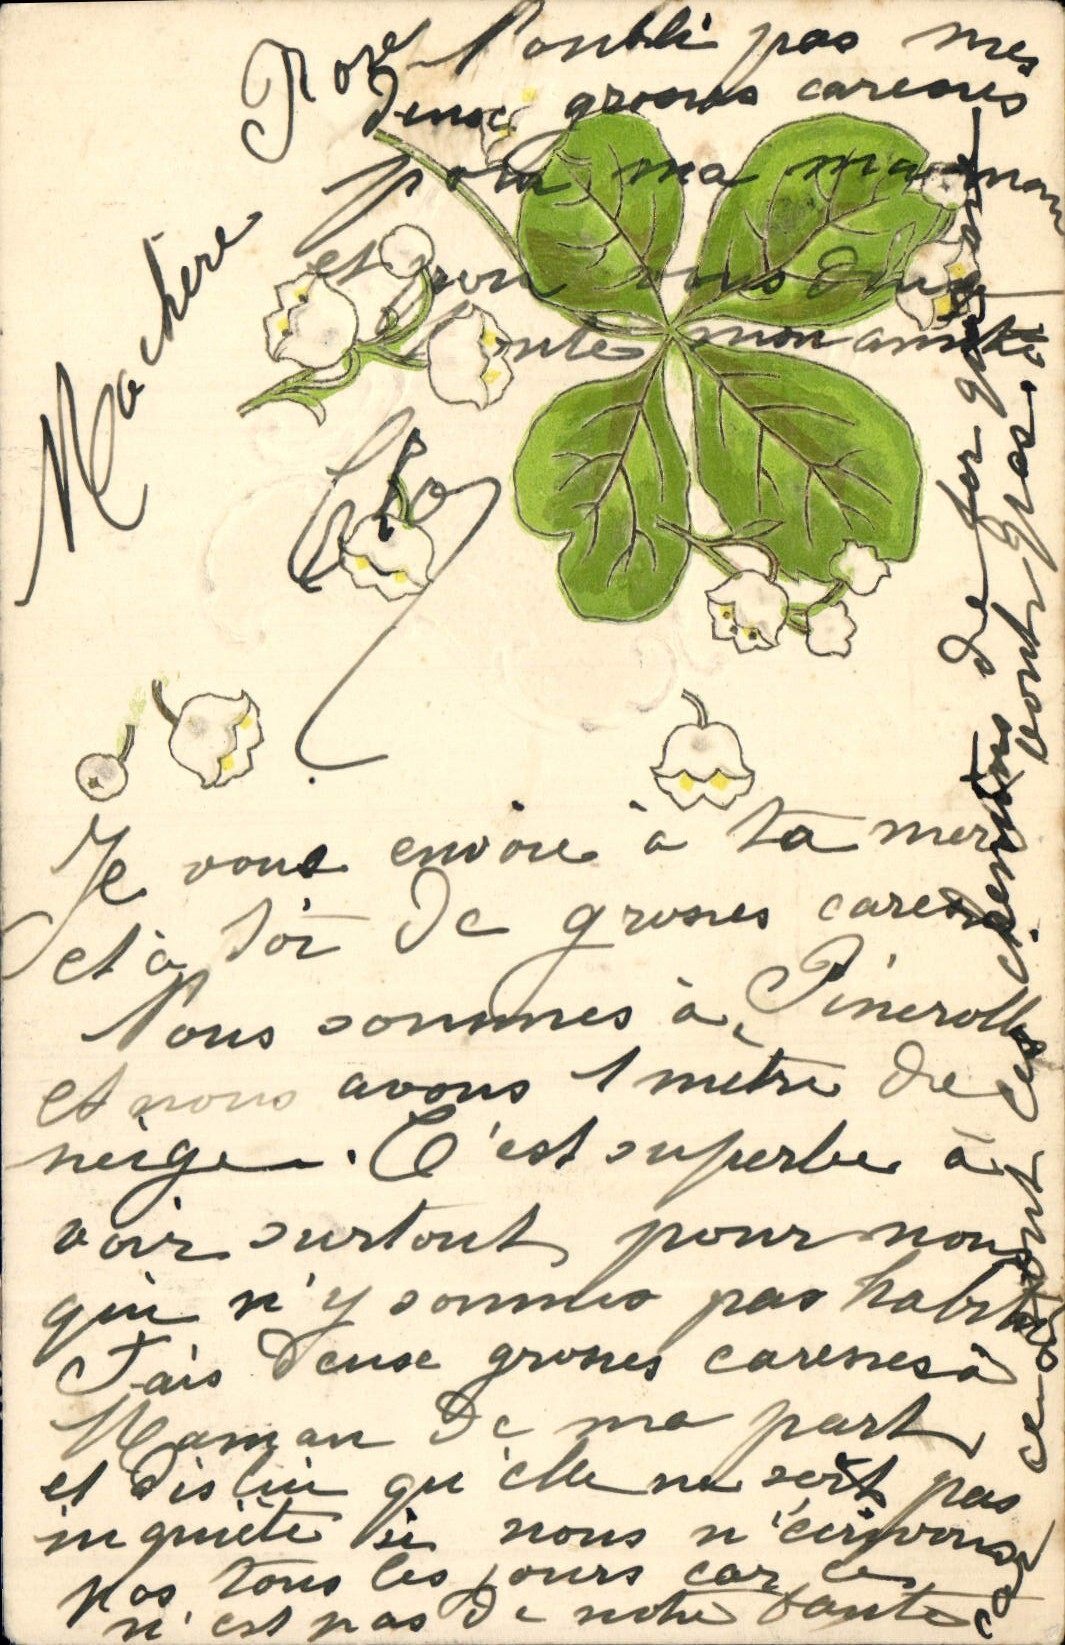 Ma chère Rose
Je vous envoie à ta mere
et à toi de grosses caresses
Nous sommes à Pinerolles
et nous avons 1 mètre de
neige. C'est superbe à
voir surtout pour nous
qui n'y sommes pas habitués
Fais deux grosses caresses à
Maman de ma part
et dis lui qu'elle ne soit pas
inquiète si nous n'écrivons
pas tous les jours car ce
n'est pas de notre faute
ce sont ces chemins de fer qui
vont pas.
N'oubli pas mes
deux grosses caresses
pour ma maman
et pour vous deux
toute mon amitié
Clo